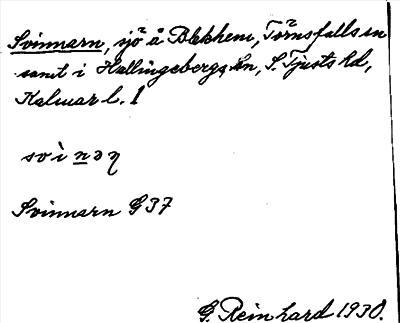 Svinnarn, sjö å Blekhem, Törnsfalls sn
samt i Hallingebergs sn, S. Tjusts hd,
Kalmar l. 1
svìnəŋ
Svinnarn G 37
G. Reinhard 1930.